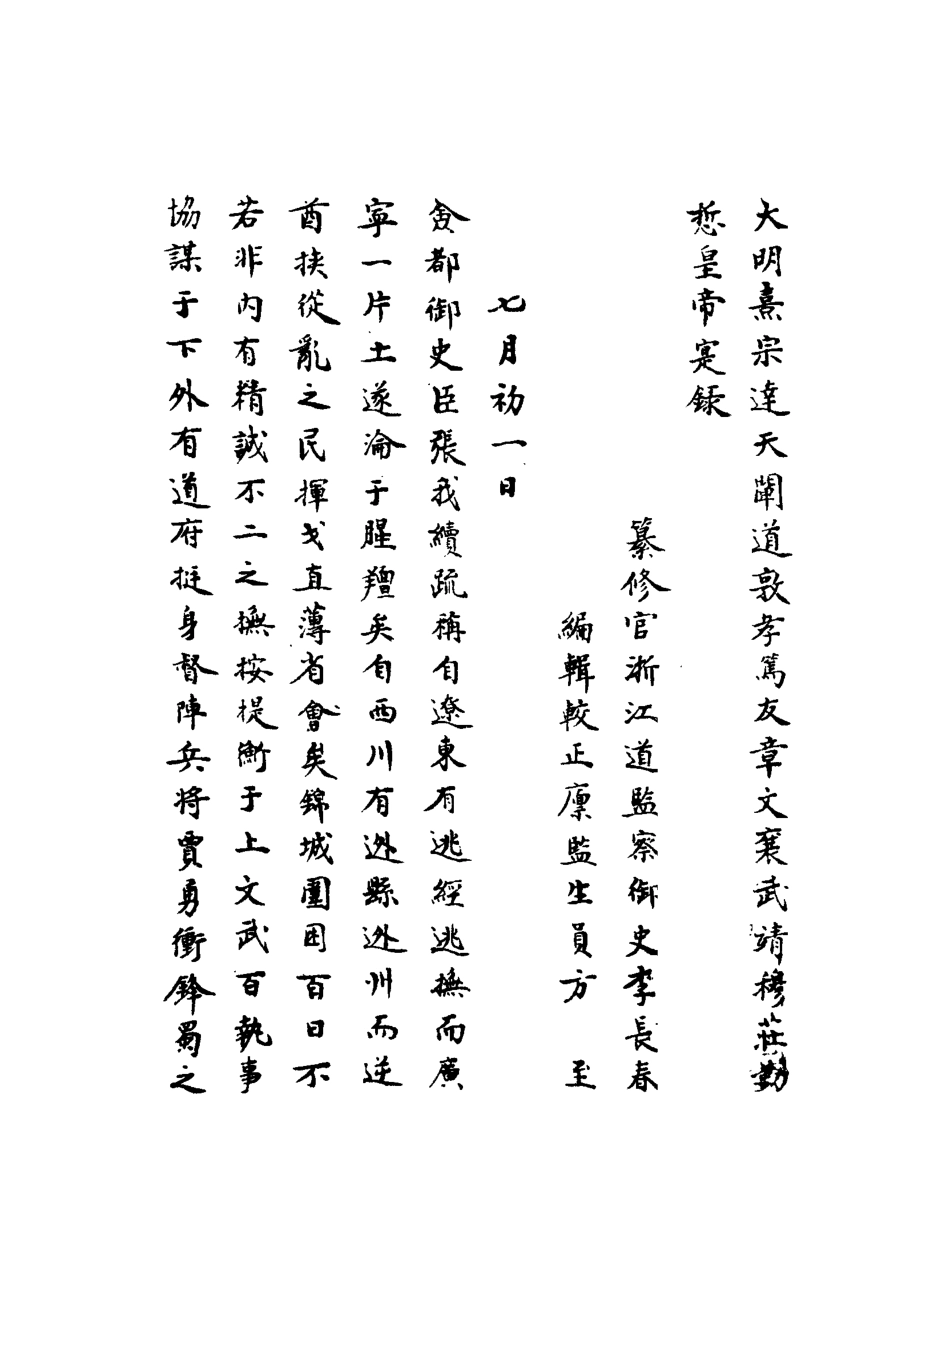 大明熹宗達天闡道敦孝篤友章文襄武靖穆莊勤
悊皇帝寔録
纂修官浙江道監察御史李長春
編輯較正廩監生員方　至
七月初一日
僉都御史臣張我續疏稱自遼東有逃經逃撫而廣
寧一片土遂淪于腥羶矣自西川有迯縣迯州而逆
酋挾從亂之民揮戈直薄省會矣錦城圍困百日不
若非內有精誠不二之撫按提衡于上文武百執事
協謀于下外有道府挺身督陣兵將賈勇衝鋒蜀之